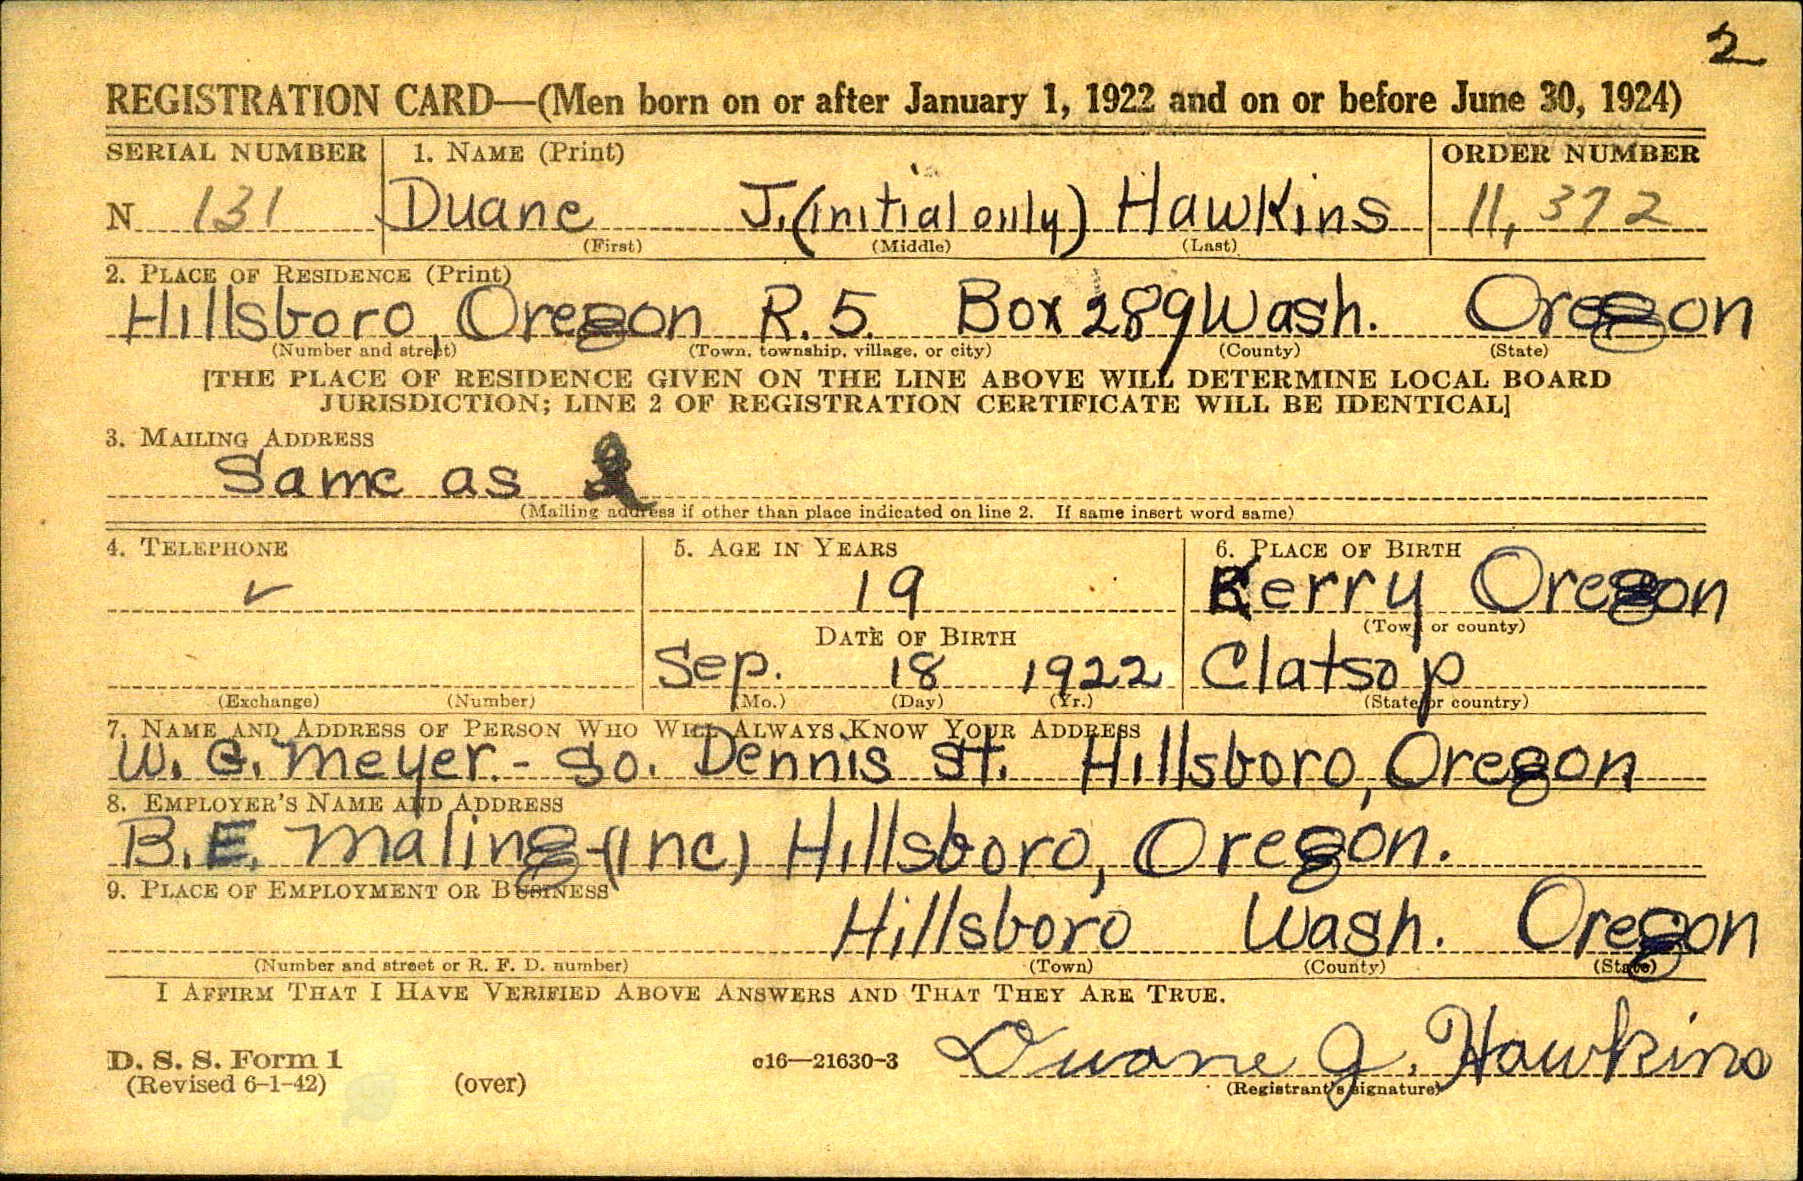 2
REGISTRATION CARD—(Men born on or after January 1, 1922 and on or before June 30, 1924)
SERIAL NUMBER 1. NAME (Print) ORDER NUMBER
N 131 Duane J. (initial only) Hawkins 11,372
(First) (Middle) (Last)
2. PLACE OF RESIDENCE (Print)
Hillsboro, Oregon R. 5. Box 289 Wash. Oregon
(Number and street) (Town, township, village, or city) (County) (State)
[THE PLACE OF RESIDENCE GIVEN ON THE LINE ABOVE WILL DETERMINE LOCAL BOARD
JURISDICTION; LINE 2 OF REGISTRATION CERTIFICATE WILL BE IDENTICAL]
3. MAILING ADDRESS
Same as 2
(Mailing address if other than place indicated on line 2. If same insert word same)
4. TELEPHONE 5. AGE IN YEARS 6. PLACE OF BIRTH
19 Kerry Oregon
DATE OF BIRTH (Town or county)
Sep. 18 1922 Clatsop
(Exchange) (Number) (Mo.) (Day) (Yr.) (State or country)
7. NAME AND ADDRESS OF PERSON WHO WILL ALWAYS KNOW YOUR ADDRESS
W. G. Meyer.- So. Dennis St. Hillsboro, Oregon
8. EMPLOYER'S NAME AND ADDRESS
B. E. Maling (Inc) Hillsboro, Oregon.
9. PLACE OF EMPLOYMENT OR BUSINESS
Hillsboro Wash. Oregon
(Number and street or R. F. D. number) (Town) (County) (State)
I AFFIRM THAT I HAVE VERIFIED ABOVE ANSWERS AND THAT THEY ARE TRUE.
D. S. S. Form 1 c16—21630-3 Duane J. Hawkins
(Revised 6-1-42) (over) (Registrant's signature)